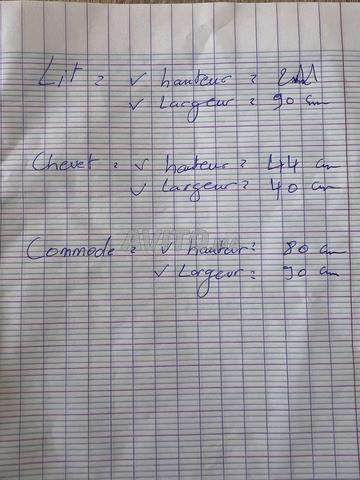 Lit = ✓ hauteur =
✓ Largeur = 90 cm
Chevet = ✓ hauteur = 44 cm
✓ Largeur = 40 cm
Commode = ✓ hauteur = 80 cm
✓ Largeur = 90 cm